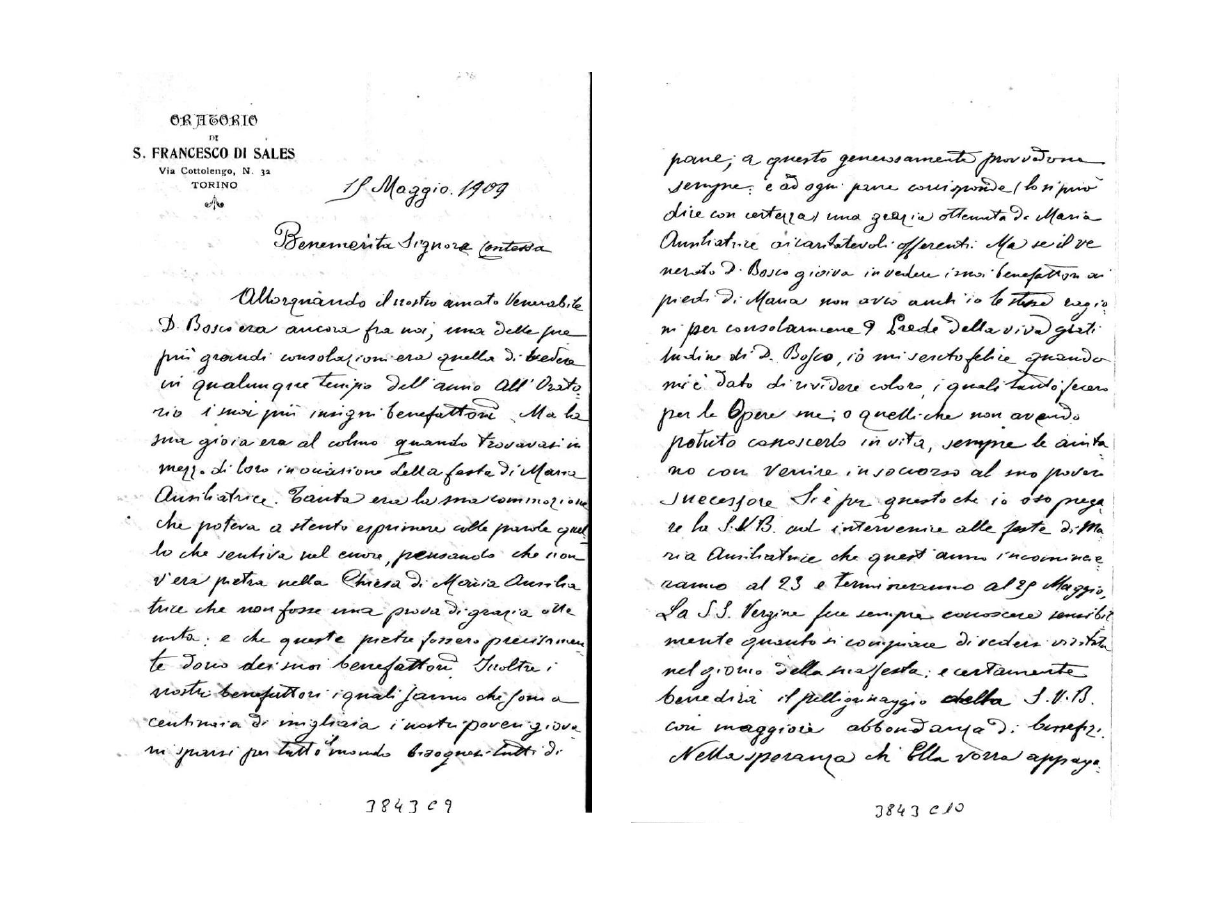 ORATORIO
DI
S. FRANCESCO DI SALES
Via Cottolengo, N. 32
TORINO
15 Maggio. 1909
Benemerita Signora Contessa
Allorquando il nostro amato Venerabile
D. Bosco era ancora fra noi, una delle sue
più grandi consolazioni era quella di vedere
in qualunque tempo dell'anno all'Orato-
rio i suoi più insigni benefattori. Ma la
sua gioia era al colmo quando trovavasi in
mezzo di loro in occasione della festa di Maria
Ausiliatrice. Tanta era la sua commozione
che poteva a stento esprimere colle parole quel
lo che sentiva nel cuore, pensando che non
v'era pietra nella Chiesa di Maria Ausilia
trice che non fosse una prova di grazia otte
nuta: e che queste pietre fossero precisamen
te dono dei suoi benefattori. Inoltre i
nostri benefattori i quali sanno che sono a
centinaia di migliaia i nostri poveri giova-
ni sparsi per tutto il mondo bisognosi tutti di
3843 C 9
pane; a questo generosamente provvedono
sempre: e ad ogni pane corrisponde (lo si può
dire con certezza) una grazia ottenuta da Maria
Ausiliatrice ai caritatevoli offerenti. Ma se il ve
nerato D. Bosco gioiva in vedere i suoi benefattori ai
piedi di Maria non avrò anch'io le stesse ragio
ni per consolarmene? Erede della viva grati
tudine di D. Bosco, io mi sento felice quando
mi è dato di rividere coloro, i quali tanto fecero
per le Opere sue; o quelli che non avendo
potuto conoscerlo in vita, sempre le aiuta
no con venire in soccorso al suo povero
successore. Si è per questo che io oso prega
re la S.V.B. ad intervenire alle feste di Ma
ria Ausiliatrice che quest'anno incomince
ranno al 23 e termineranno al 25 Maggio.
La S.S. Vergine fece sempre conoscere sensibil
mente quanto si compiace di vedersi visitata
nel giorno della sua festa; e certamente
benedirà il pellegrinaggio della S.V.B.
con maggiore abbondanza di benefizi.
Nella speranza ch' Ella vorrà appaga-
3843 C 10